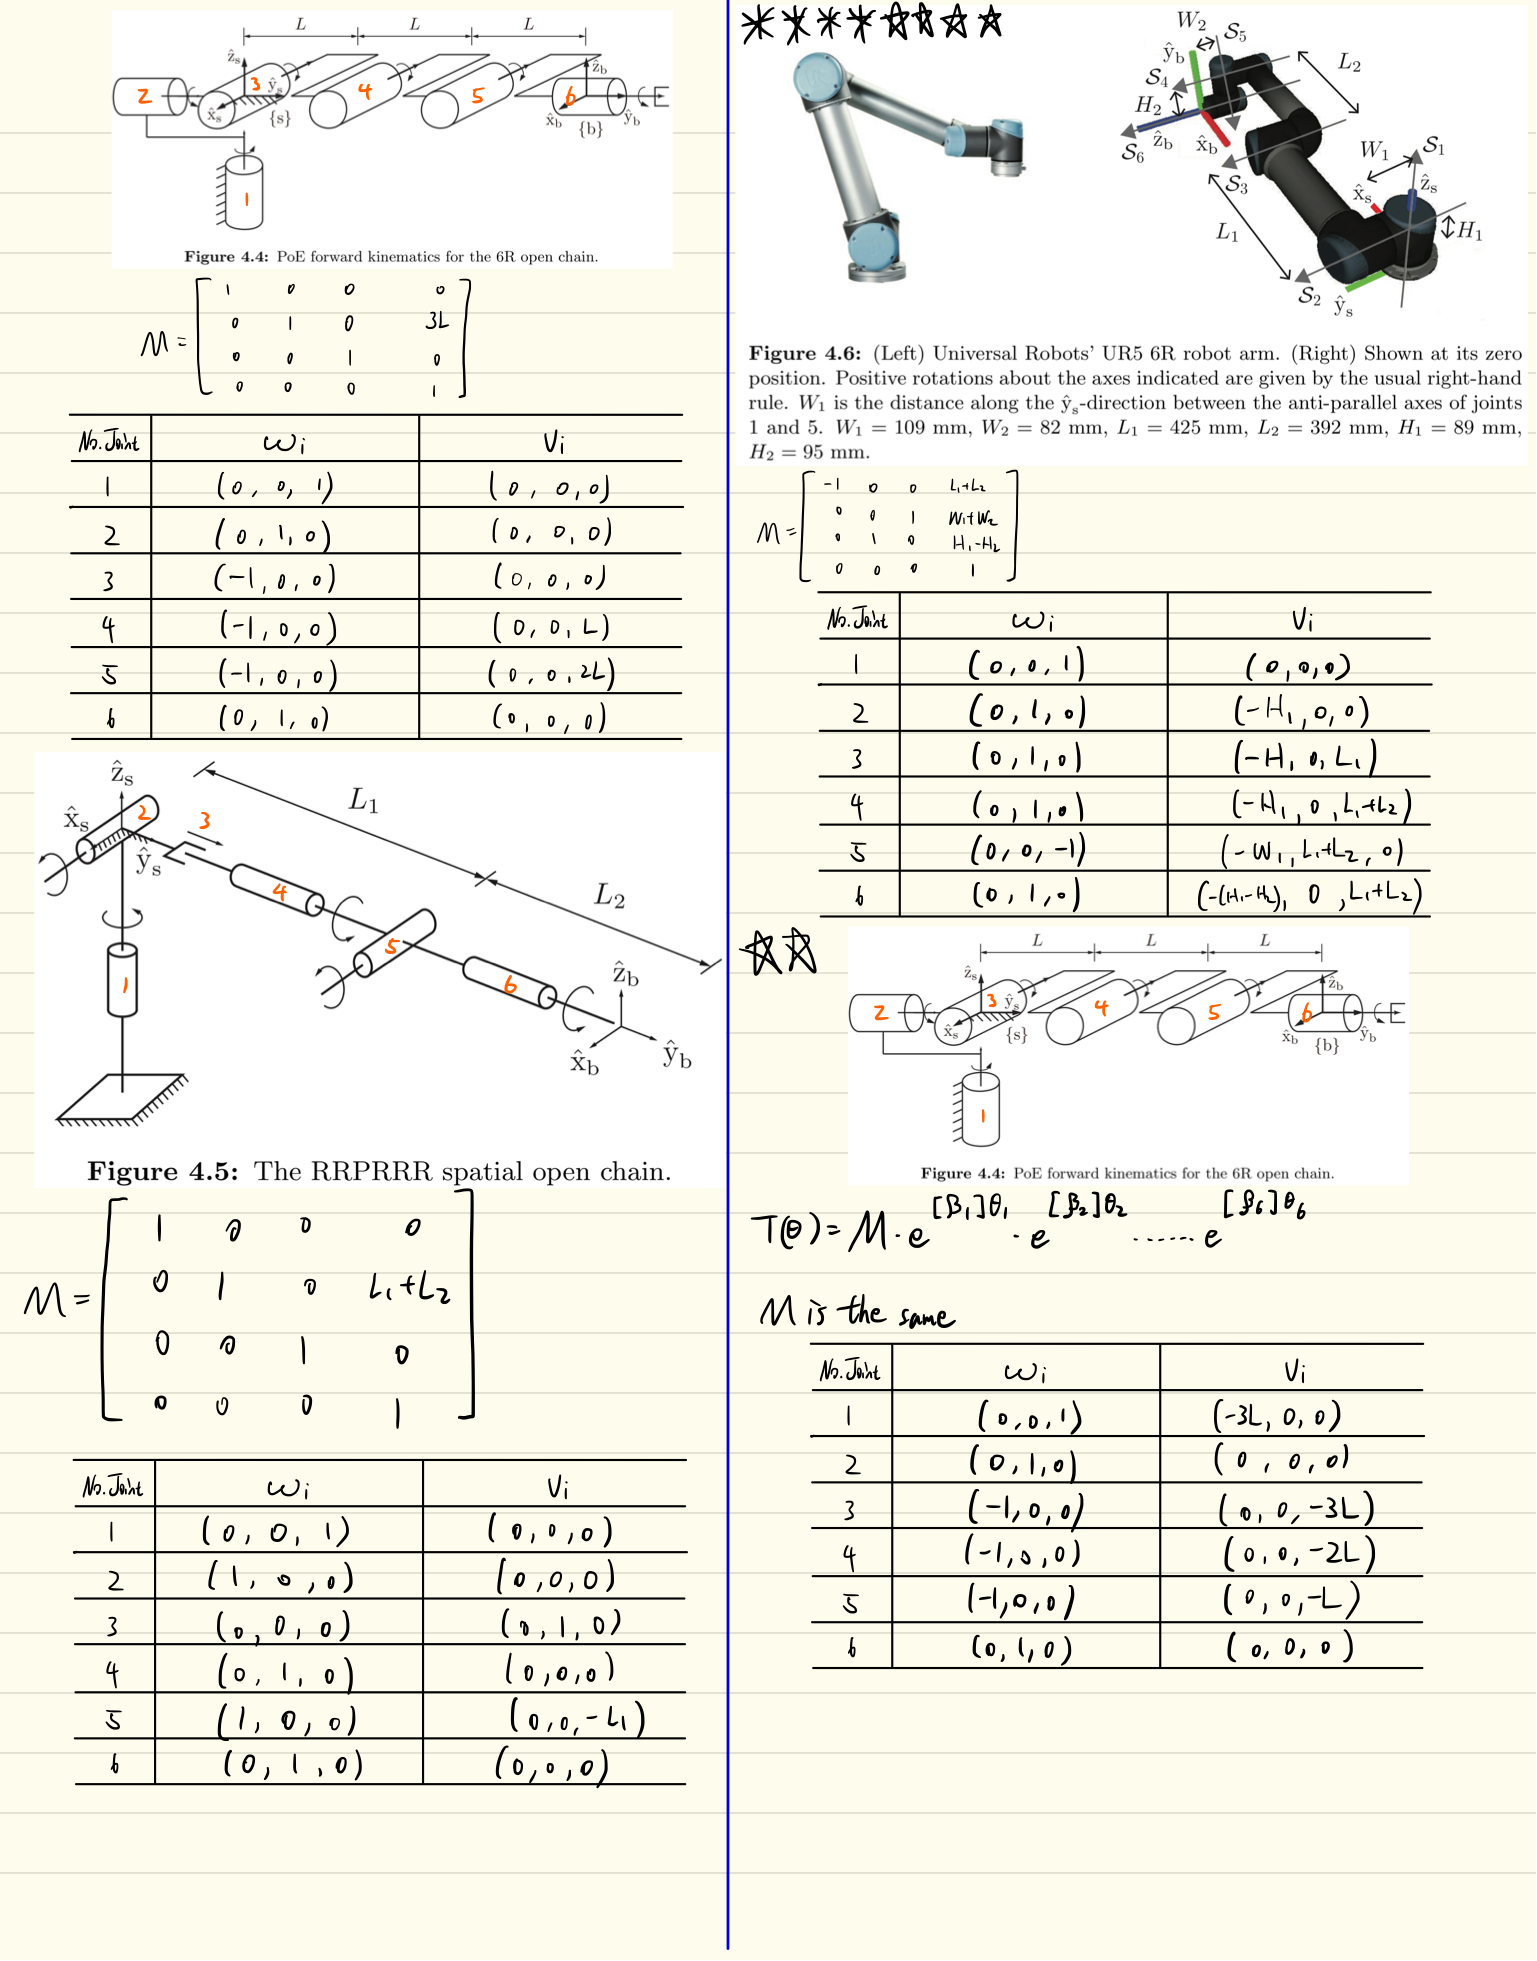 L L L
ẑs ẑb
2 3 ŷs 4 5 6 E
x̂s {s} x̂b {b} ŷb
1
Figure 4.4: PoE forward kinematics for the 6R open chain.
M = [ 1 0 0 0
0 1 0 3L
0 0 1 0
0 0 0 1 ]
No. Joint ωi Vi
1 (0, 0, 1) (0, 0, 0)
2 (0, 1, 0) (0, 0, 0)
3 (-1, 0, 0) (0, 0, 0)
4 (-1, 0, 0) (0, 0, L)
5 (-1, 0, 0) (0, 0, 2L)
6 (0, 1, 0) (0, 0, 0)
ẑs
x̂s 2 3 L1
ŷs
4 L2
5
1 6 ẑb
x̂b ŷb
Figure 4.5: The RRPRRR spatial open chain.
M = [ 1 0 0 0
0 1 0 L1+L2
0 0 1 0
0 0 0 1 ]
No. Joint ωi Vi
1 (0, 0, 1) (0, 0, 0)
2 (1, 0, 0) (0, 0, 0)
3 (0, 0, 0) (0, 1, 0)
4 (0, 1, 0) (0, 0, 0)
5 (1, 0, 0) (0, 0, -L1)
6 (0, 1, 0) (0, 0, 0)
W2 S5
ŷb L2
S4
H2
S6 ẑb x̂b
S3 W1 S1
x̂s ẑs
L1 H1
S2 ŷs
Figure 4.6: (Left) Universal Robots' UR5 6R robot arm. (Right) Shown at its zero
position. Positive rotations about the axes indicated are given by the usual right-hand
rule. W1 is the distance along the ŷs-direction between the anti-parallel axes of joints
1 and 5. W1 = 109 mm, W2 = 82 mm, L1 = 425 mm, L2 = 392 mm, H1 = 89 mm,
H2 = 95 mm.
M = [ -1 0 0 L1+L2
0 0 1 W1+W2
0 1 0 H1-H2
0 0 0 1 ]
No. Joint ωi Vi
1 (0, 0, 1) (0, 0, 0)
2 (0, 1, 0) (-H1, 0, 0)
3 (0, 1, 0) (-H1 0, L1)
4 (0, 1, 0) (-H1, 0, L1+L2)
5 (0, 0, -1) (-W1, L1+L2, 0)
6 (0, 1, 0) (-(H1-H2), 0, L1+L2)
L L L
ẑs ẑb
2 3 ŷs 4 5 6 E
x̂s {s} x̂b {b} ŷb
1
Figure 4.4: PoE forward kinematics for the 6R open chain.
T(θ) = M · e^[β1]θ1 · e^[β2]θ2 ...... e^[β6]θ6
M is the same
No. Joint ωi Vi
1 (0, 0, 1) (-3L, 0, 0)
2 (0, 1, 0) (0, 0, 0)
3 (-1, 0, 0) (0, 0, -3L)
4 (-1, 0, 0) (0, 0, -2L)
5 (-1, 0, 0) (0, 0, -L)
6 (0, 1, 0) (0, 0, 0)